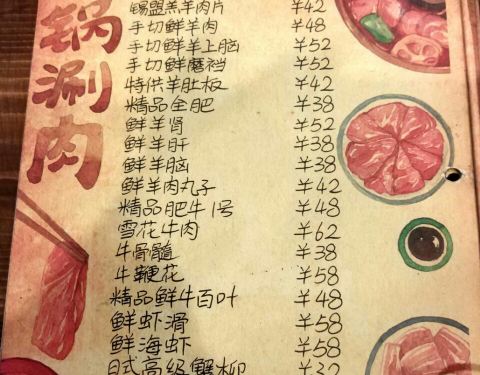 锅涮肉
锡盟羔羊肉片 ¥42
手切鲜羊肉 ¥48
手切鲜羊上脑 ¥52
手切鲜磨裆 ¥52
特供羊肚板 ¥42
精品全肥 ¥38
鲜羊肾 ¥52
鲜羊肝 ¥38
鲜羊脑 ¥38
鲜羊肉丸子 ¥42
精品肥牛1号 ¥48
雪花牛肉 ¥62
牛骨髓 ¥38
牛鞭花 ¥58
精品鲜牛百叶 ¥48
鲜虾滑 ¥58
鲜海虾 ¥58
日式高级蟹柳 ¥32